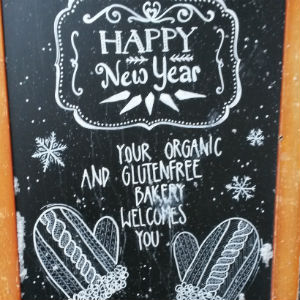 HAPPY
New Year
YOUR ORGANIC
AND GLUTENFREE
BAKERY
WELCOMES
YOU